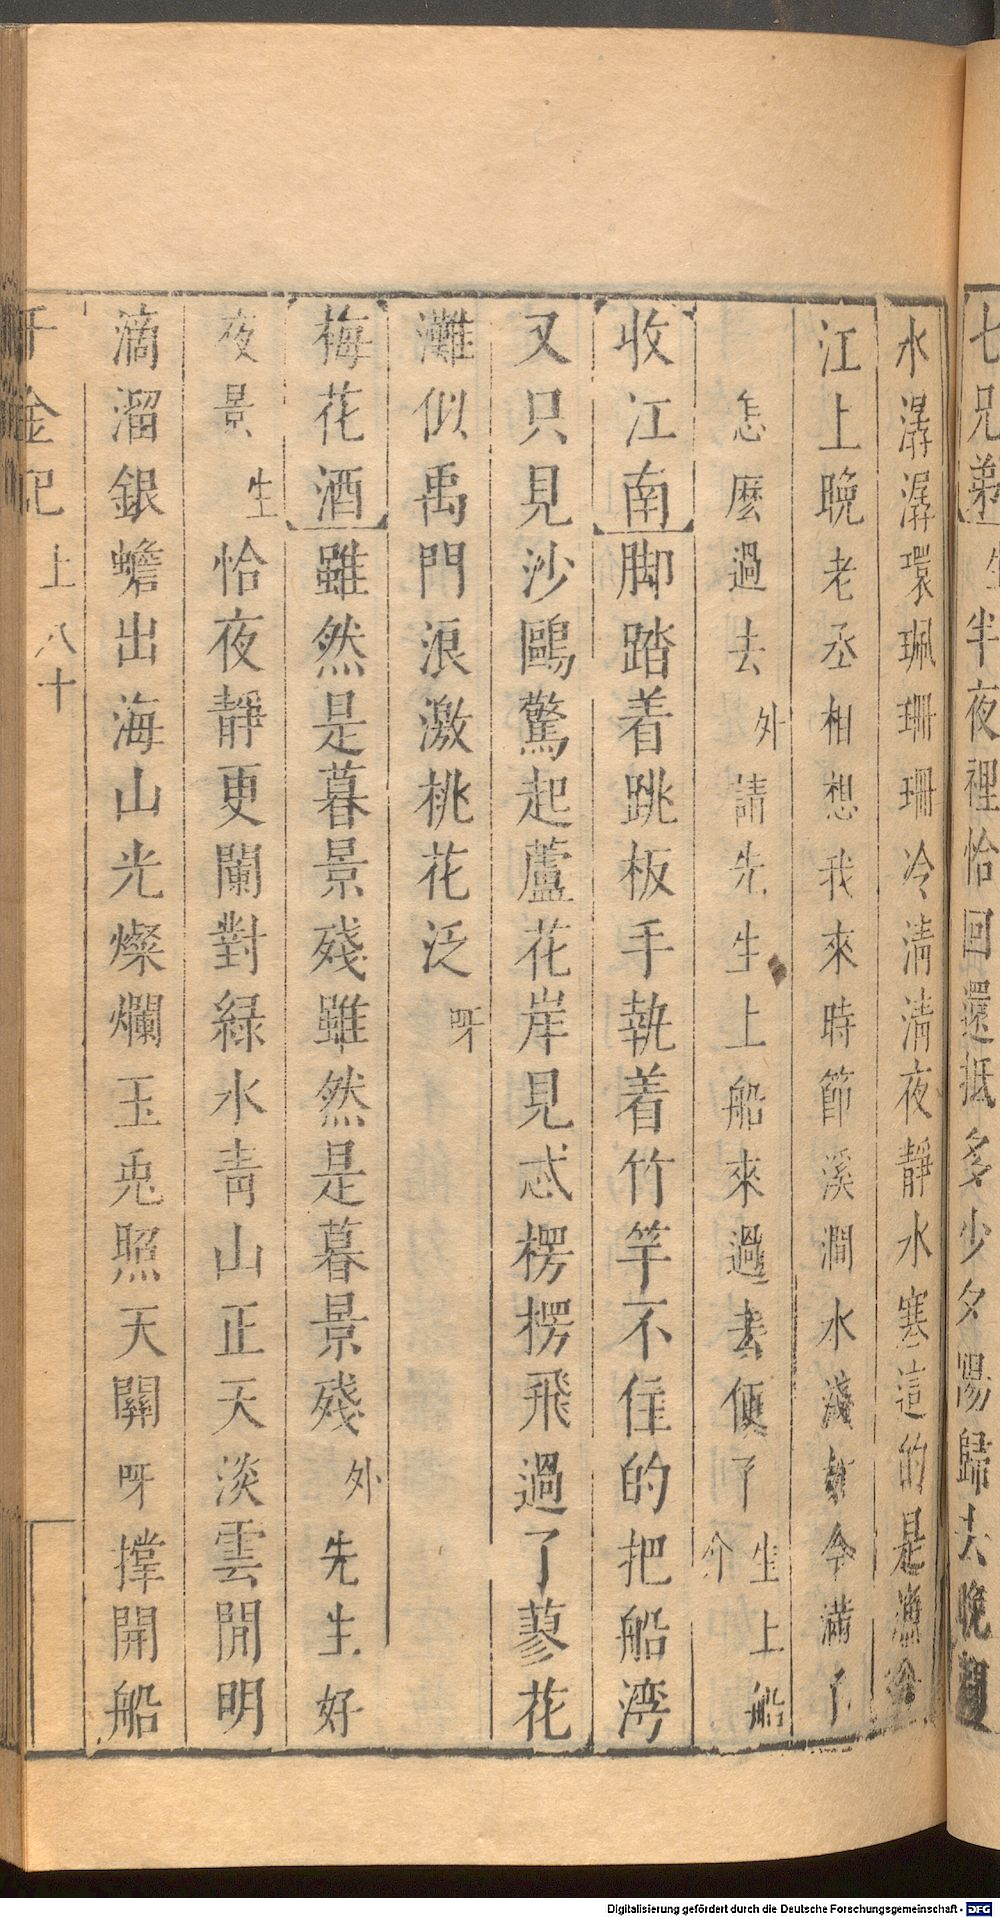 七兄弟生半夜裡恰回還抵多少夕陽歸去晚
水潺潺環珮珊珊冷清清夜靜水寒這的是漁
江上晚老丞相想我來時節溪澗水淺如今滿了
怎麼過去外請先生上船來過去便了生上船介
收江南脚踏着跳板手執着竹竿不住的把船湾
又只見沙鷗驚起蘆花岸見忒楞楞飛過了蓼花
灘似禹門浪激桃花泛呀
梅花酒雖然是暮景殘雖然是暮景殘外先生好
夜景生恰夜靜更闌對緑水青山正天淡雲閒明
滴溜銀蟾出海山光燦爛玉兎照天關呀撑開船
千金記 上 八十
Digitalisierung gefördert durch die Deutsche Forschungsgemeinschaft - DFG